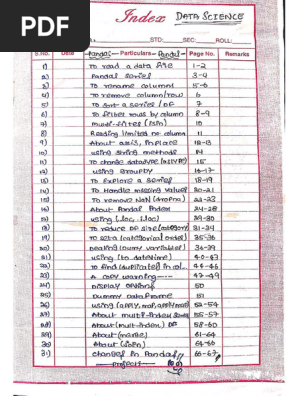 PDF
Index DATA SCIENCE
STD: SEC: ROLL:
S.No. Date Pandas Particulars Pandas Page No. Remarks
1) To read a data file 1-2
2) Pandas series 3-4
3) To rename columns 5-6
4) To remove column/row 6
5) To sort a series/DF 7
6) To filter rows by column 8-9
7) multi-filter (isin) 10
8) Reading limited no column 11
9) About axis, inplace 12-13
10) using string methods 14
11) To change datatype (astype) 15
12) using Groupby 16-17
13) To Explore a series 18-19
14) To Handle missing values 20-21
15) To remove NaN (dropna) 22-23
16) About Pandas Index 24-28
17) using (.loc, .iloc) 29-30
18) To reduce DF size (category) 31-34
19) To set a (categorical order) 35-36
20) Dealing (dummy variables) 36-39
21) using (to datetime) 40-43
22) To find (duplicates) in col... 44-46
23) A copy warning--- 47-49
24) DISPLAY OPTIONS 50
25) Dummy dataframe 51
26) using (apply, map, applymap) 52-54
27) About multi-index series 55-57
28) About (multi-index) DF 58-60
29) About (merge) 61-64
30) About (join) 64-66
31) changes in Pandas 66-67
project